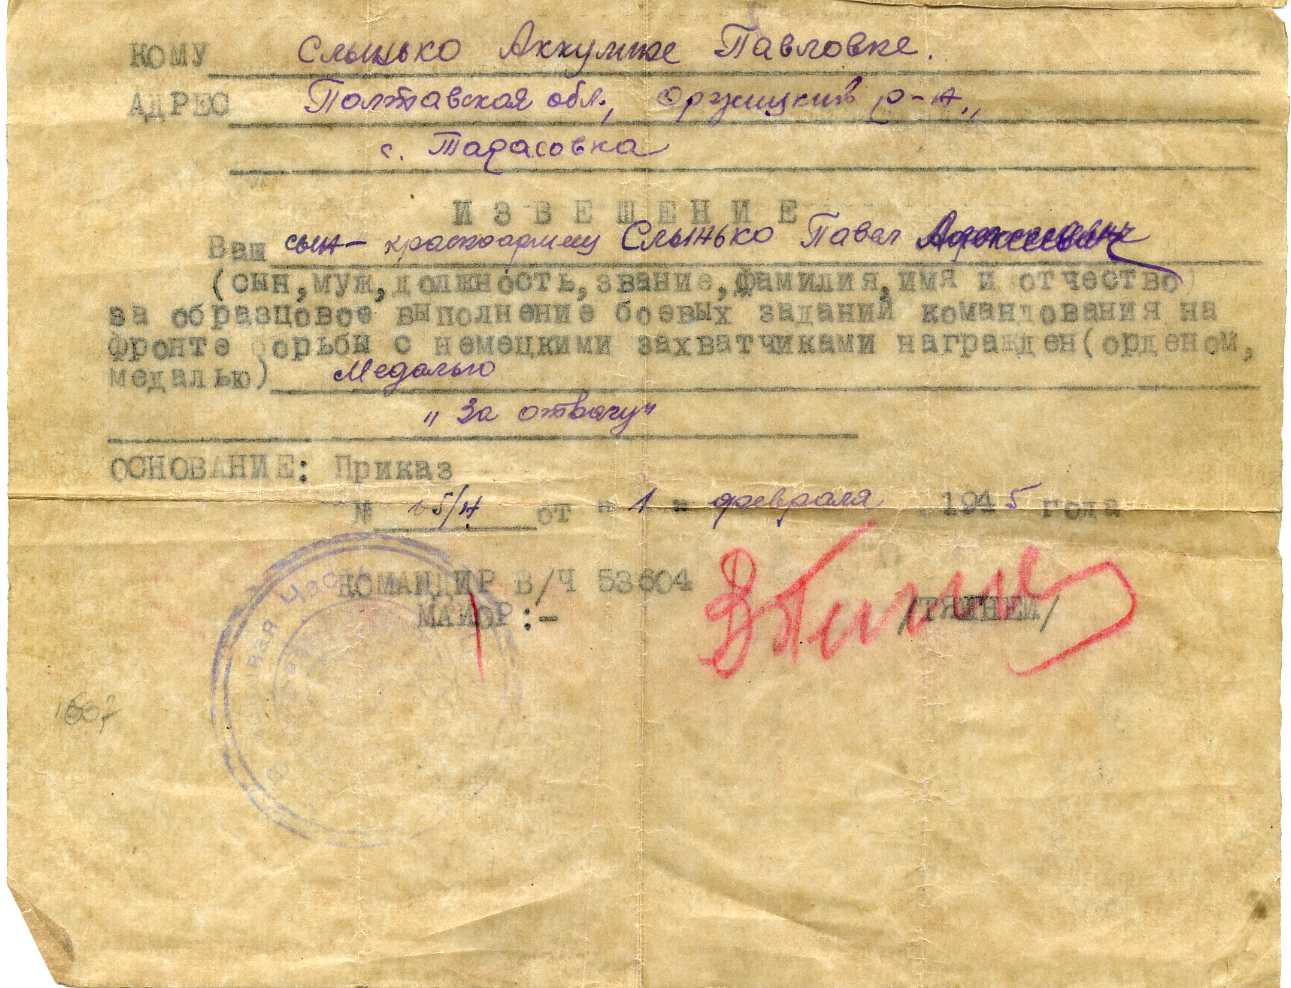 КОМУ Слынько Аккулине Павловне.
АДРЕС Полтавская обл., Оржицкий р-н,
с. Тарасовка
ИЗВЕЩЕНИЕ
Ваш сын - красноармеец Слынько Павел
(сын,муж,должность,звание,фамилия,имя и отчество)
за образцовое выполнение боевых заданий командования на
фронте борьбы с немецкими захватчиками награжден(орденом,
медалью) Медалью
"За отвагу"
ОСНОВАНИЕ: Приказ
№ 05/н от "1" февраля 1945 года
КОМАНДИР В/Ч 53604
МАЙОР:- /ТЯГНЕЙ/
Часть